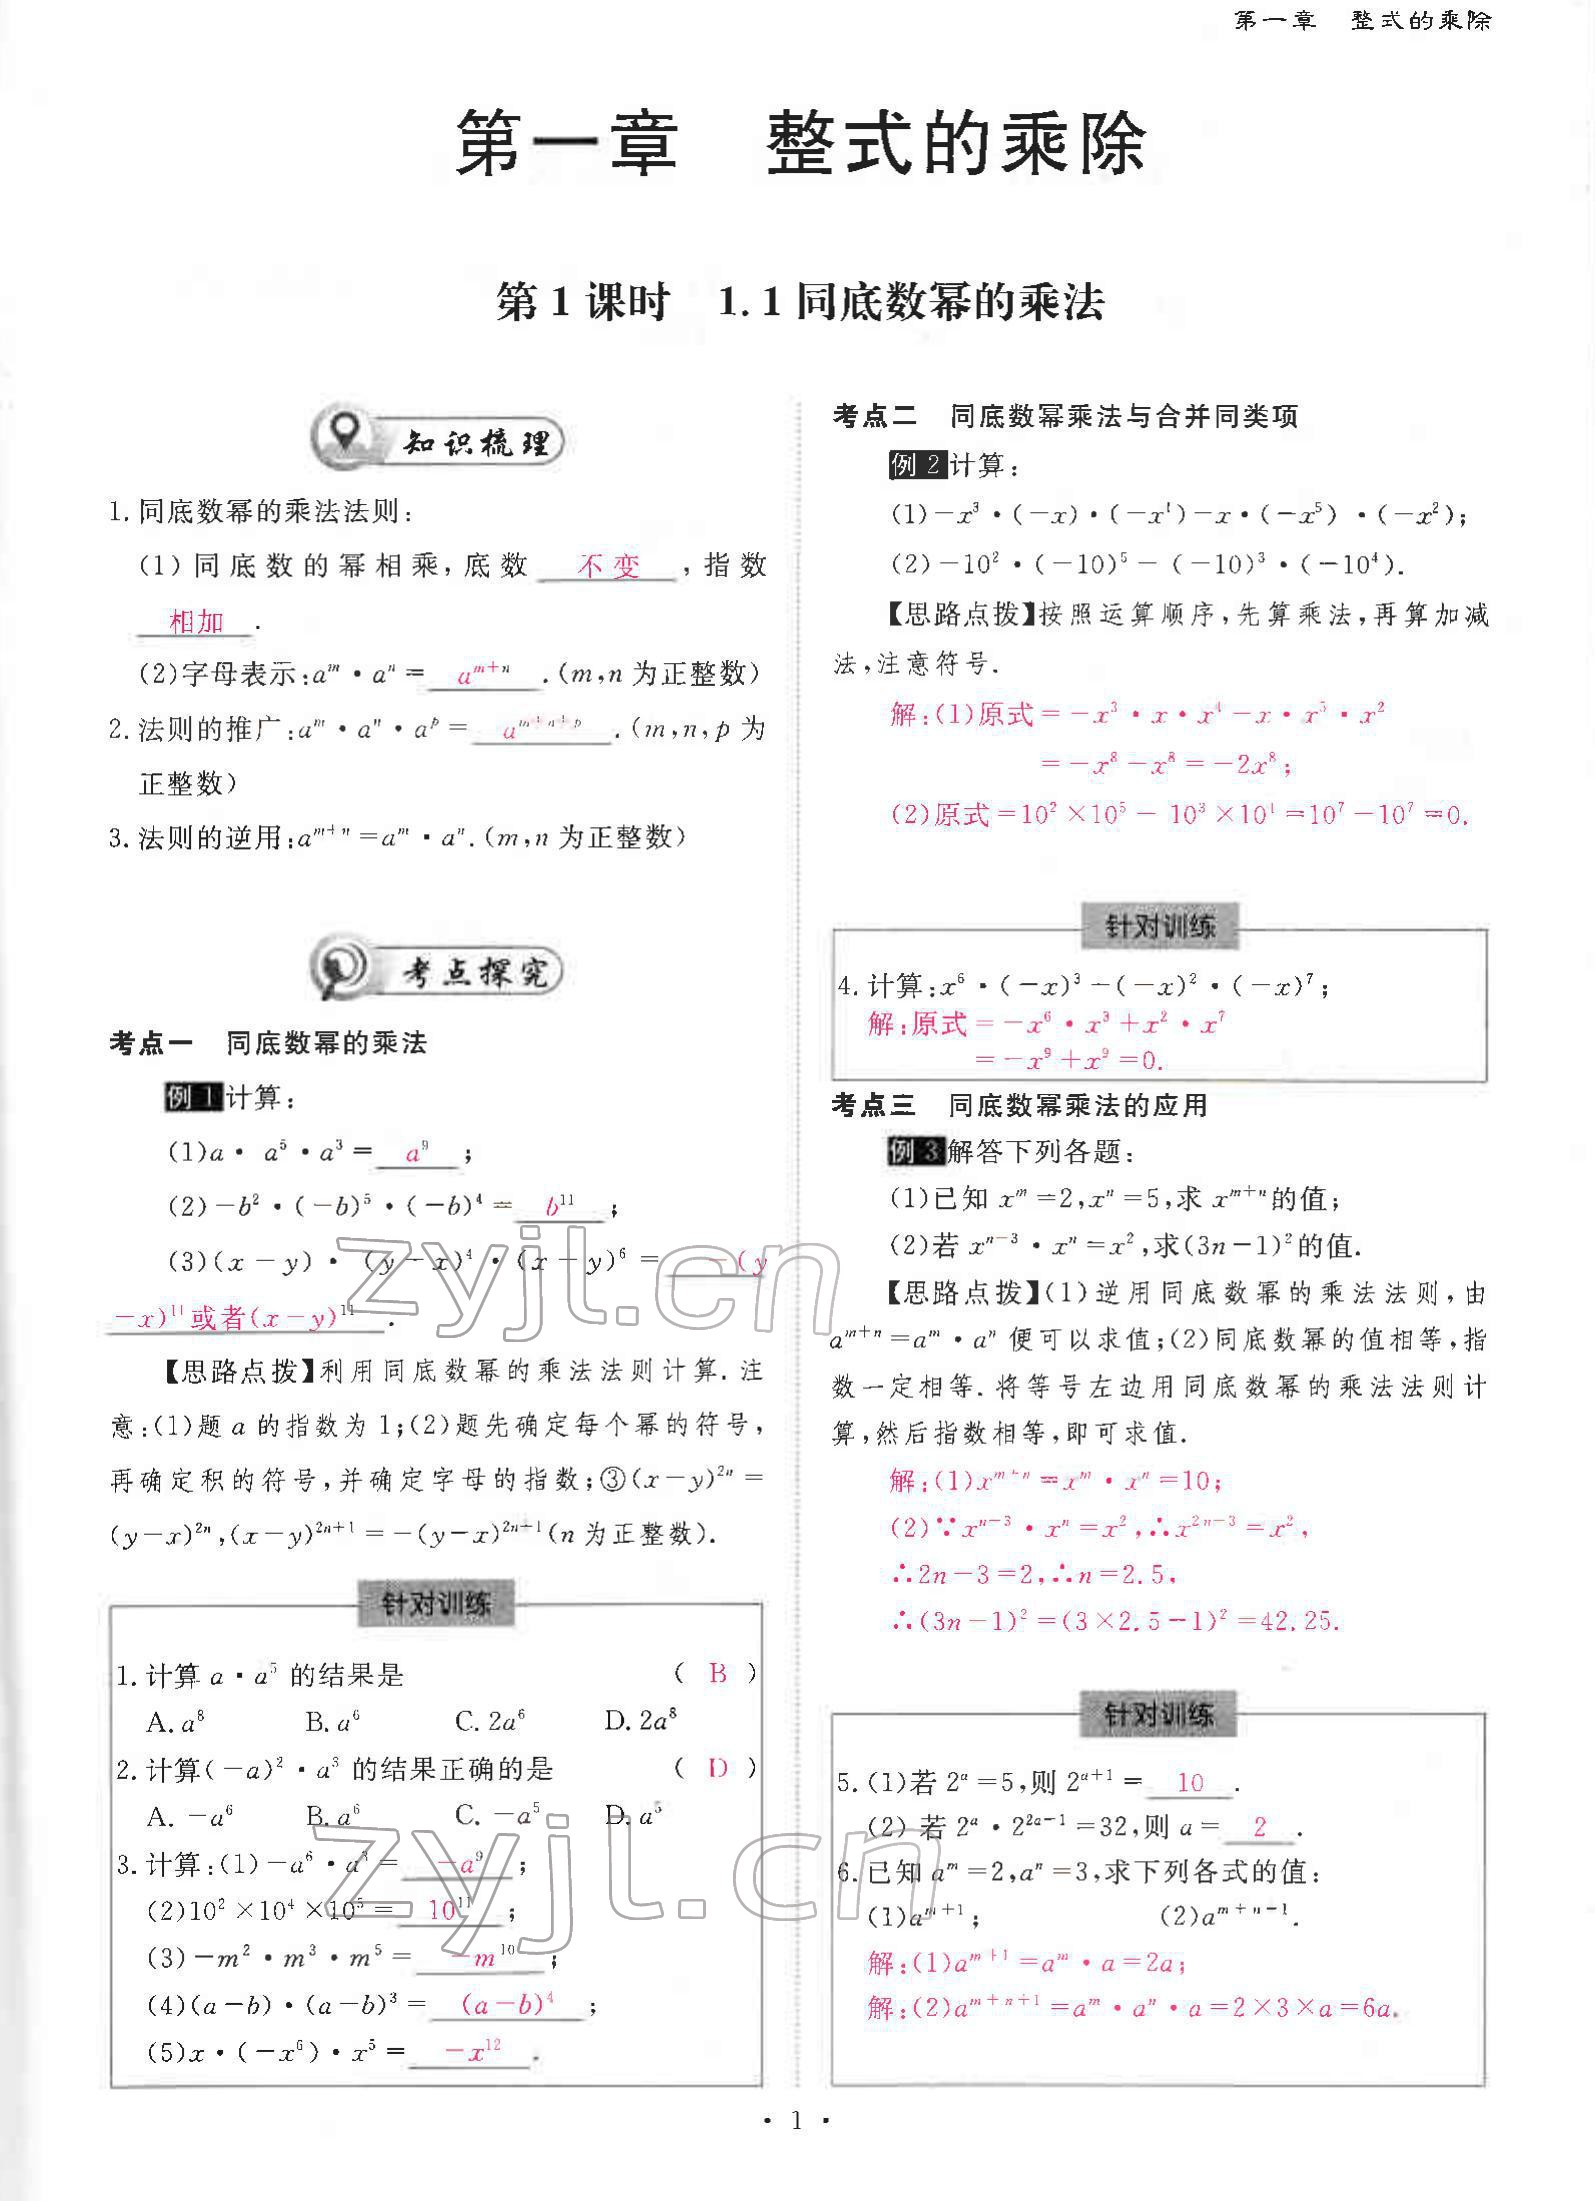 第一章 整式的乘除
第一章 整式的乘除
第1课时 1.1同底数幂的乘法
知识梳理
1.同底数幂的乘法法则:
(1)同底数的幂相乘,底数 不变 ,指数
相加 .
(2)字母表示:aᵐ·aⁿ= aᵐ⁺ⁿ .(m,n为正整数)
2.法则的推广:aᵐ·aⁿ·aᵖ= aᵐ⁺ⁿ⁺ᵖ .(m,n,p为
正整数)
3.法则的逆用:aᵐ⁺ⁿ=aᵐ·aⁿ.(m,n为正整数)
考点探究
考点一 同底数幂的乘法
例1 计算:
(1)a·a⁵·a³= a⁹ ;
(2)-b²·(-b)⁵·(-b)⁴= b¹¹ ;
(3)(x-y)·(y-x)⁴·(x-y)⁶= -(y
-x)¹¹或者(x-y)¹¹ .
【思路点拨】利用同底数幂的乘法法则计算.注
意:(1)题a的指数为1;(2)题先确定每个幂的符号,
再确定积的符号,并确定字母的指数;③(x-y)²ⁿ=
(y-x)²ⁿ,(x-y)²ⁿ⁺¹=-(y-x)²ⁿ⁺¹(n为正整数).
针对训练
1.计算a·a⁵的结果是 ( B )
A.a⁸ B.a⁶ C.2a⁶ D.2a⁸
2.计算(-a)²·a³的结果正确的是 ( D )
A.-a⁶ B.a⁶ C.-a⁵ D.a⁵
3.计算:(1)-a⁶·a³= -a⁹ ;
(2)10²×10⁴×10⁵= 10¹¹ ;
(3)-m²·m³·m⁵= -m¹⁰ ;
(4)(a-b)·(a-b)³= (a-b)⁴ ;
(5)x·(-x⁶)·x⁵= -x¹² .
考点二 同底数幂乘法与合并同类项
例2 计算:
(1)-x³·(-x)·(-x⁴)-x·(-x⁵)·(-x²);
(2)-10²·(-10)⁵-(-10)³·(-10⁴).
【思路点拨】按照运算顺序,先算乘法,再算加减
法,注意符号.
解:(1)原式=-x³·x·x⁴-x·x⁵·x²
=-x⁸-x⁸=-2x⁸;
(2)原式=10²×10⁵-10³×10⁴=10⁷-10⁷=0.
针对训练
4.计算:x⁶·(-x)³-(-x)²·(-x)⁷;
解:原式=-x⁶·x³+x²·x⁷
=-x⁹+x⁹=0.
考点三 同底数幂乘法的应用
例3 解答下列各题:
(1)已知xᵐ=2,xⁿ=5,求xᵐ⁺ⁿ的值;
(2)若xⁿ⁻³·xⁿ=x²,求(3n-1)²的值.
【思路点拨】(1)逆用同底数幂的乘法法则,由
aᵐ⁺ⁿ=aᵐ·aⁿ便可以求值;(2)同底数幂的值相等,指
数一定相等.将等号左边用同底数幂的乘法法则计
算,然后指数相等,即可求值.
解:(1)xᵐ⁺ⁿ=xᵐ·xⁿ=10;
(2)∵xⁿ⁻³·xⁿ=x²,∴x²ⁿ⁻³=x²,
∴2n-3=2,∴n=2.5,
∴(3n-1)²=(3×2.5-1)²=42.25.
针对训练
5.(1)若2ᵃ=5,则2ᵃ⁺¹= 10 .
(2)若2ᵃ·2²ᵃ⁻¹=32,则a= 2 .
6.已知aᵐ=2,aⁿ=3,求下列各式的值:
(1)aᵐ⁺¹; (2)aᵐ⁺ⁿ⁻¹.
解:(1)aᵐ⁺¹=aᵐ·a=2a;
解:(2)aᵐ⁺ⁿ⁺¹=aᵐ·aⁿ·a=2×3×a=6a.
·1·
zyjl.cn
zyjl.cn